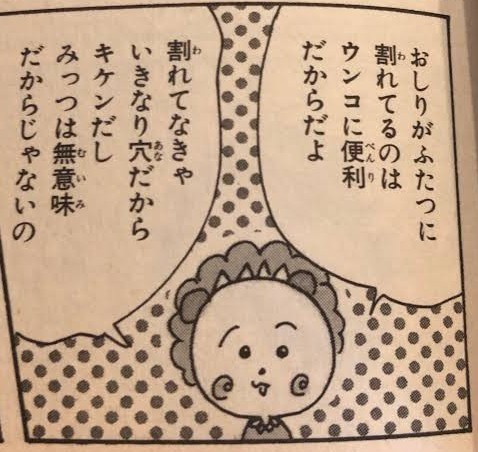 おしりがふたつに
割れてるのは
ウンコに便利
だからだよ
割れてなきゃ
いきなり穴だから
キケンだし
みっつは無意味
だからじゃないの